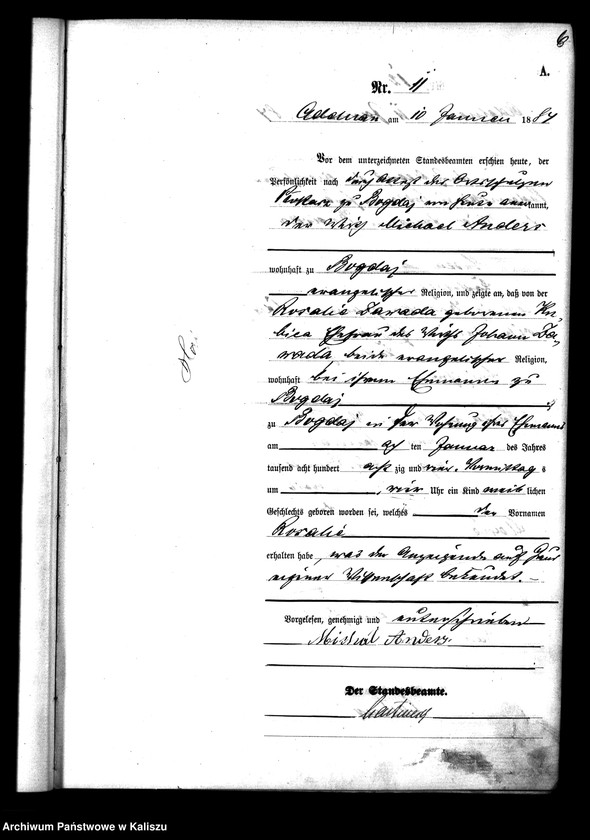 6
A.
Nr. 11
Adelnau am 10 Januar 1884
Vor dem unterzeichneten Standesbeamten erschien heute, der
Persönlichkeit nach durch Attest des Ortsschulzen
zu Bogdaj von heute anerkannt,
der Wirth Michael Anders
wohnhaft zu Bogdaj
evangelischer Religion, und zeigte an, daß von der
Rosalie Zawada geborenen Ku-
bica Ehefrau des Wirths Johann Za-
wada beide evangelischer Religion,
wohnhaft bei ihrem Ehemanne zu
Bogdaj
zu Bogdaj in der Wohnung ihres Ehemanns
am ten Januar des Jahres
tausend acht hundert acht zig und vier, Vormittag s
um , vier Uhr ein Kind weib lichen
Geschlechts geboren worden sei, welches den Vornamen
Rosalie
erhalten habe, was der Anzeigende auf Grund
eigener Wissenschaft bekundet. –
Vorgelesen, genehmigt und unterschrieben
Anders.
Der Standesbeamte.
Archiwum Państwowe w Kaliszu